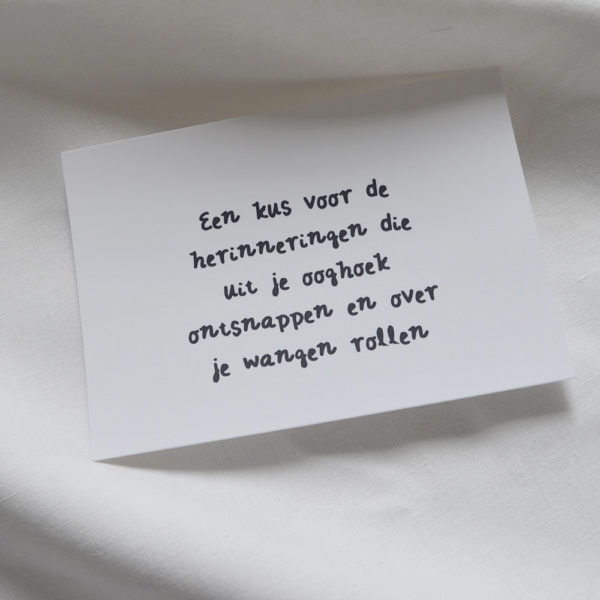 Een kus voor de
herinneringen die
uit je ooghoek
ontsnappen en over
je wangen rollen